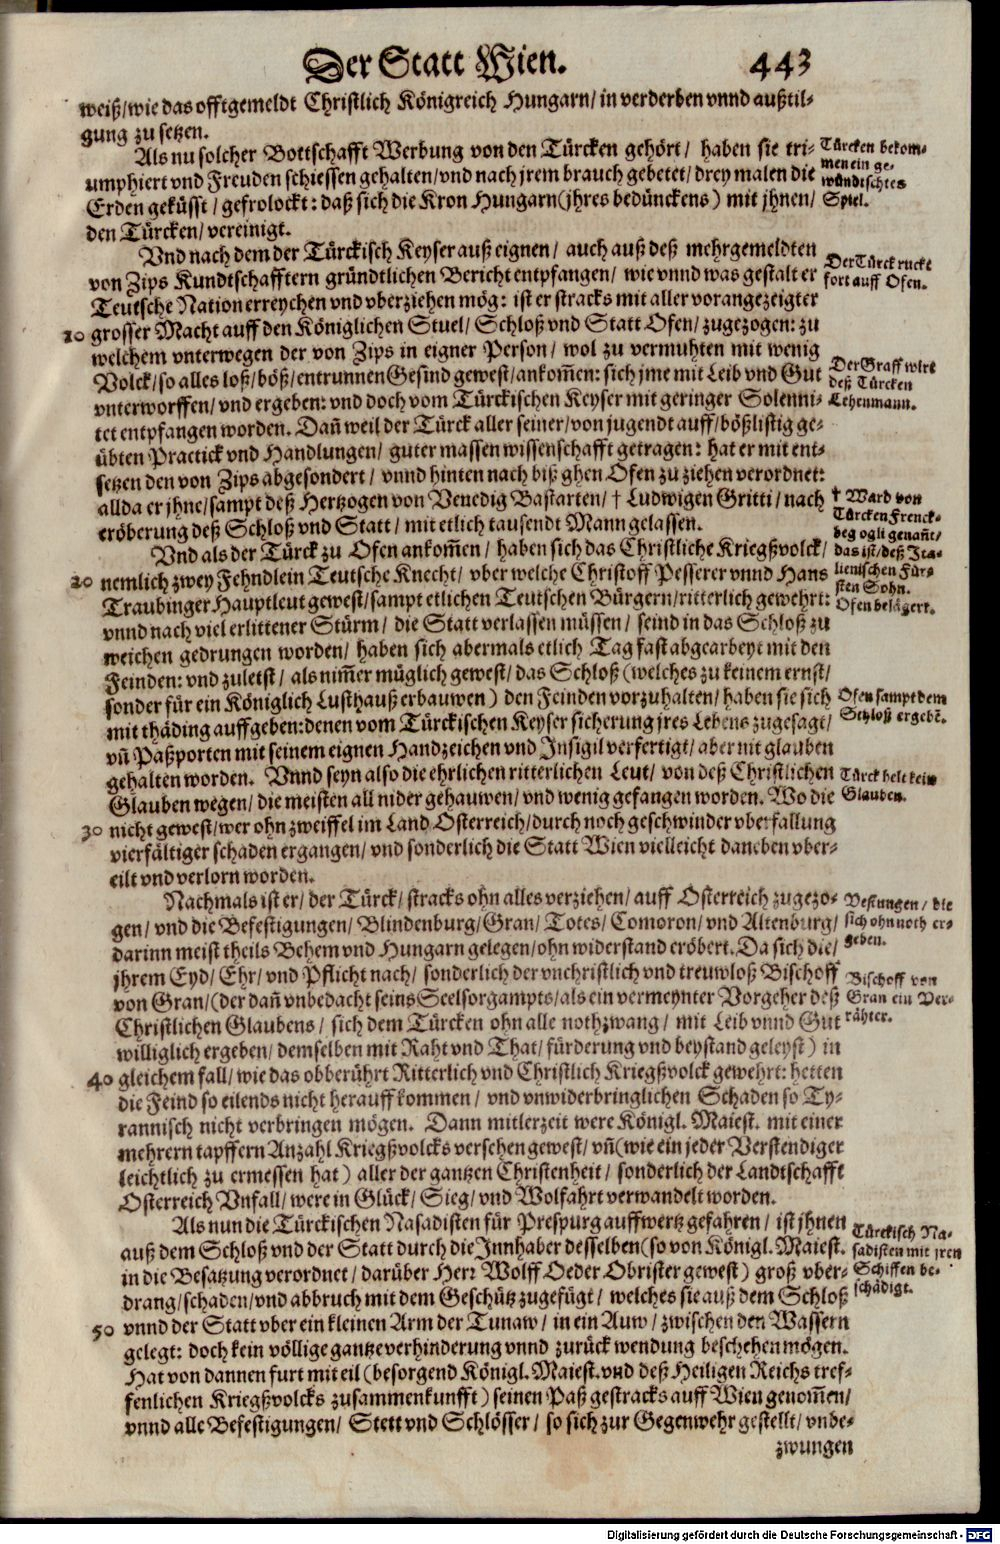 Der Statt Wien.
443
weiß/wie das offtgemeldt Christlich Königreich Hungarn/in verderben vnnd außtil-
gung zu setzen.
Als nu solcher Bottschafft Werbung von den Türcken gehört/ haben sie tri-
umphiert vnd Freuden schiessen gehalten/vnd nach jrem brauch gebetet/drey malen die
Erden geküsst/gefrolockt: daß sich die Kron Hungarn(jhres bedünckens) mit jhnen/
den Türcken/vereinigt.
Türcken bekom-
men ein ge-
wündtschtes
Spiel.
Vnd nach dem der Türckisch Keyser auß eignen/ auch auß deß mehrgemeldten
von Zips Kundtschafftern gründtlichen Bericht entpfangen/ wie vnnd was gestalt er
Teutsche Nation erreychen vnd vberziehen mög: ist er stracks mit aller vorangezeigter
10 grosser Macht auff den Königlichen Stuel/ Schloß vnd Statt Ofen/zugezogen: zu
welchem vnterwegen der von Zips in eigner Person/ wol zu vermuhten mit wenig
Volck/so alles loß/böß/entrunnen Gesind gewest/ankom̃en: sich jme mit Leib vnd Gut
vnterworffen/vnd ergeben: vnd doch vom Türckischen Keyser mit geringer Solenni-
tet entpfangen worden. Dañ weil der Türck aller seiner/von jugendt auff/bößlistig ge-
übten Practick vnd Handlungen/ guter massen wissenschafft getragen: hat er mit ent-
setzen den von Zips abgesondert/ vnnd hinten nach biß ghen Ofen zu ziehen verordnet:
allda er jhne/sampt deß Hertzogen von Venedig Bastarten/ † Ludwigen Gritti/ nach
eröberung deß Schloß vnd Statt/mit etlich tausendt Mann gelassen.
Der Türck ruckt
fort auff Ofen.
Der Graff wirt
deß Türcken
Lehenmann.
† Ward von
Türcken Frenck-
beg ogli genañt/
das ist/deß Ita-
lienischen Für-
sten Sohn.
Ofen belägert.
Vnd als der Türck zu Ofen ankom̃en/ haben sich das Christliche Kriegßvolck/
20 nemlich zwey Fehndlein Teutsche Knecht/ vber welche Christoff Pesserer vnnd Hans
Traubinger Hauptleut gewest/sampt etlichen Teutschen Bürgern/ritterlich gewehrt:
vnnd nach viel erlittener Stürm/ die Statt verlassen müssen/ seind in das Schloß zu
weichen gedrungen worden/ haben sich abermals etlich Tag fast abgearbeyt mit den
Feinden: vnd zuletst/ als nim̃er müglich gewest/das Schloß (welches zu keinem ernst/
sonder für ein Königlich Lusthauß erbauwen) den Feinden vorzuhalten/haben sie sich
mit thäding auffgeben:denen vom Türckischen Keyser sicherung jres Lebens zugesagt/
vñ Paßporten mit seinem eignen Handzeichen vnd Insigil verfertigt/ aber nit glauben
gehalten worden. Vnnd seyn also die ehrlichen ritterlichen Leut/ von deß Christlichen
Glauben wegen/die meisten all nider gehauwen/vnd wenig gefangen worden. Wo die
30 nicht gewest/wer ohn zweiffel im Land Osterreich/durch noch geschwinder vberfallung
vierfältiger schaden ergangen/ vnd sonderlich die Statt Wien vielleicht daneben vber-
eilt vnd verlorn worden.
Ofen sampt dem
Schloß ergebẽ.
Türck helt kein
Glauben.
Nachmals ist er/ der Türck/ stracks ohn alles verziehen/ auff Osterreich zugezo-
gen/ vnd die Befestigungen/ Blindenburg/Gran/ Totes/Comoron/vnd Altenburg/
darinn meist theils Behem vnd Hungarn gelegen/ohn widerstand eröbert. Da sich die/
jhrem Eyd/Ehr/vnd Pflicht nach/ sonderlich der vnchristlich vnd treuwloß Bischoff
von Gran/(der dañ vnbedacht seins Seelsorgampts/als ein vermeynter Vorgeher deß
Christlichen Glaubens/ sich dem Türcken ohn alle nothzwang/ mit Leib vnnd Gut
williglich ergeben/demselben mit Raht vnd That/fürderung vnd beystand geleyst) in
40 gleichem fall/wie das obberührt Ritterlich vnd Christlich Kriegßvolck gewehrt: hetten
die Feind so eilends nicht herauff kommen/ vnd vnwiderbringlichen Schaden so Ty-
rannisch nicht verbringen mögen. Dann mitlerzeit were Königl. Maiest. mit einer
mehrern tapffern Anzahl Kriegßvolcks versehen gewest/ vñ(wie ein jeder Verstendiger
leichtlich zu ermessen hat) aller der gantzen Christenheit/ sonderlich der Landtschafft
Osterreich Vnfall/were in Glück/Sieg/vnd Wolfahrt verwandelt worden.
Vestungen/ die
sich ohn noth er-
geben.
Bischoff von
Gran ein Ver-
rähter.
Als nun die Türckischen Nasadisten für Prespurg auffwertz gefahren/ ist jhnen
auß dem Schloß vnd der Statt durch die Innhaber desselben(so von Königl. Maiest.
in die Besatzung verordnet/darüber Herr Wolff Oeder Obrister gewest) groß vber-
drang/schaden/vnd abbruch mit dem Geschütz zugefügt/ welches sie auß dem Schloß
50 vnnd der Statt vber ein kleinen Arm der Tunaw/ in ein Auw/zwischen den Wassern
gelegt: doch kein völlige gantze verhinderung vnnd zurück wendung beschehen mögen.
Hat von dannen furt mit eil (besorgend Königl. Maiest. vnd deß Heiligen Reichs tref-
fenlichen Kriegßvolcks zusammenkunfft) seinen Paß gestracks auff Wien genom̃en/
vnnd alle Befestigungen/ Stett vnd Schlösser/ so sich zur Gegenwehr gestellt/vnbe-
zwungen
Türckisch Na-
sadisten mit jren
Schiffen be-
schädigt.
Digitalisierung gefördert durch die Deutsche Forschungsgemeinschaft - DFG